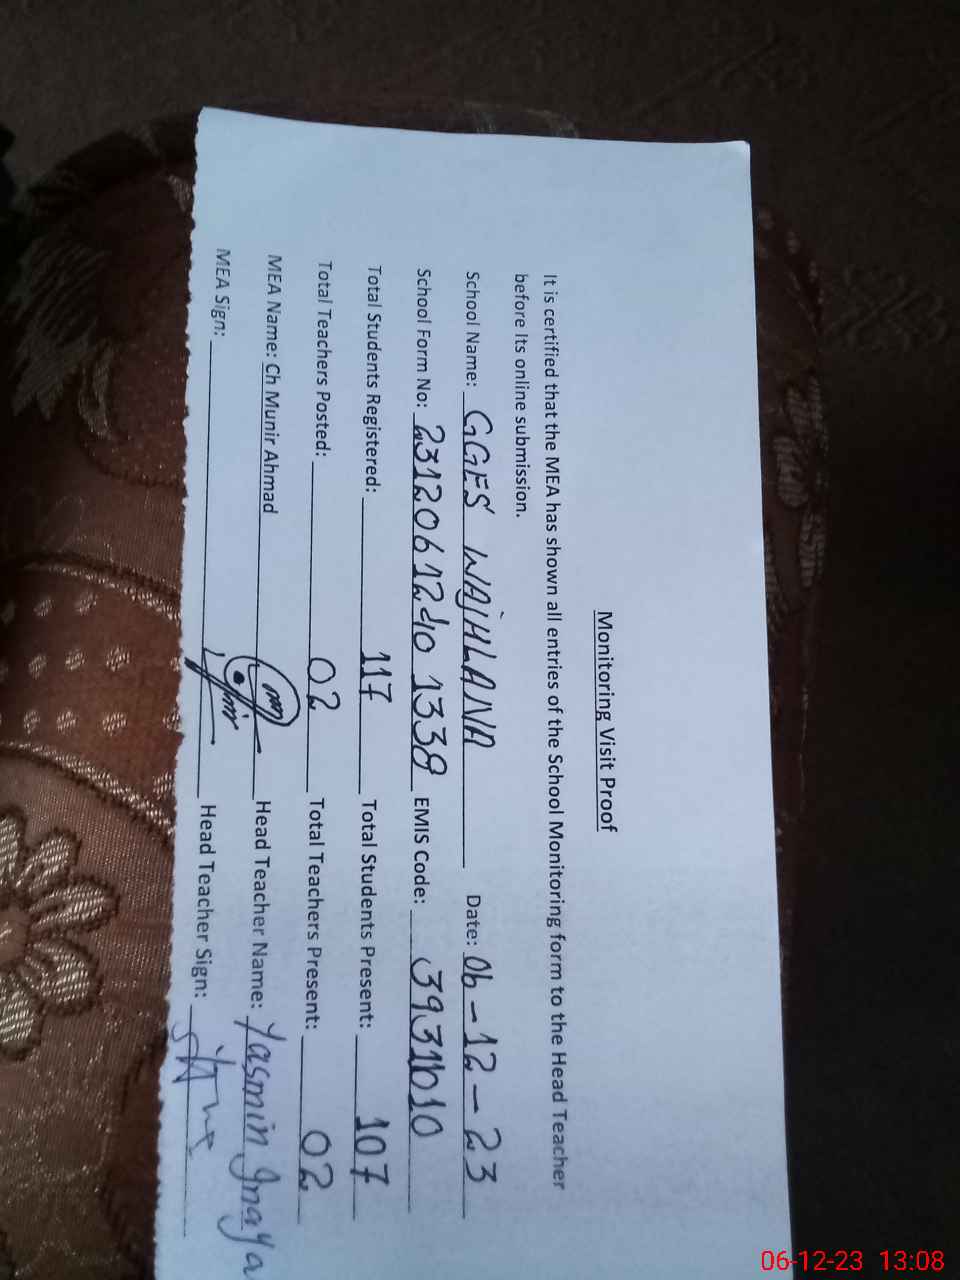 Monitoring Visit Proof
It is certified that the MEA has shown all entries of the School Monitoring form to the Head Teacher
before Its online submission.
School Name: GGES WAJHLANA Date: 06-12-23
School Form No: 2312061210 1338 EMIS Code: 3931010
Total Students Registered: 117 Total Students Present: 107
Total Teachers Posted: 02 Total Teachers Present: 02
MEA Name: Ch Munir Ahmad Head Teacher Name: Yasmin Inaya
MEA Sign: Head Teacher Sign:
06-12-23 13:08